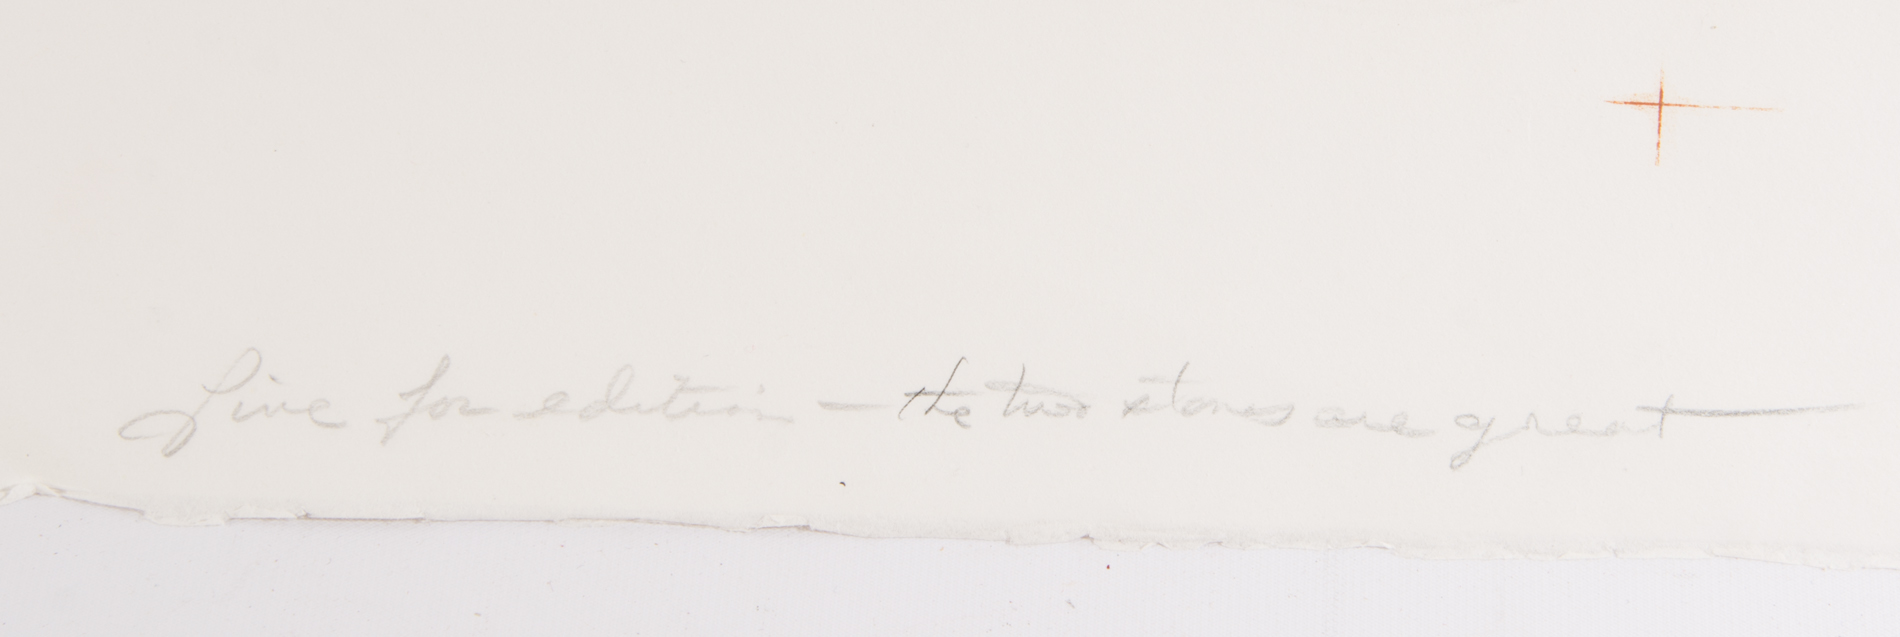 Fine for edition — the two stones are great